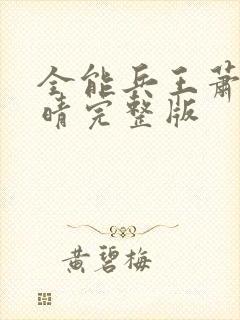 全能兵王萧
晴完整版
黄碧梅